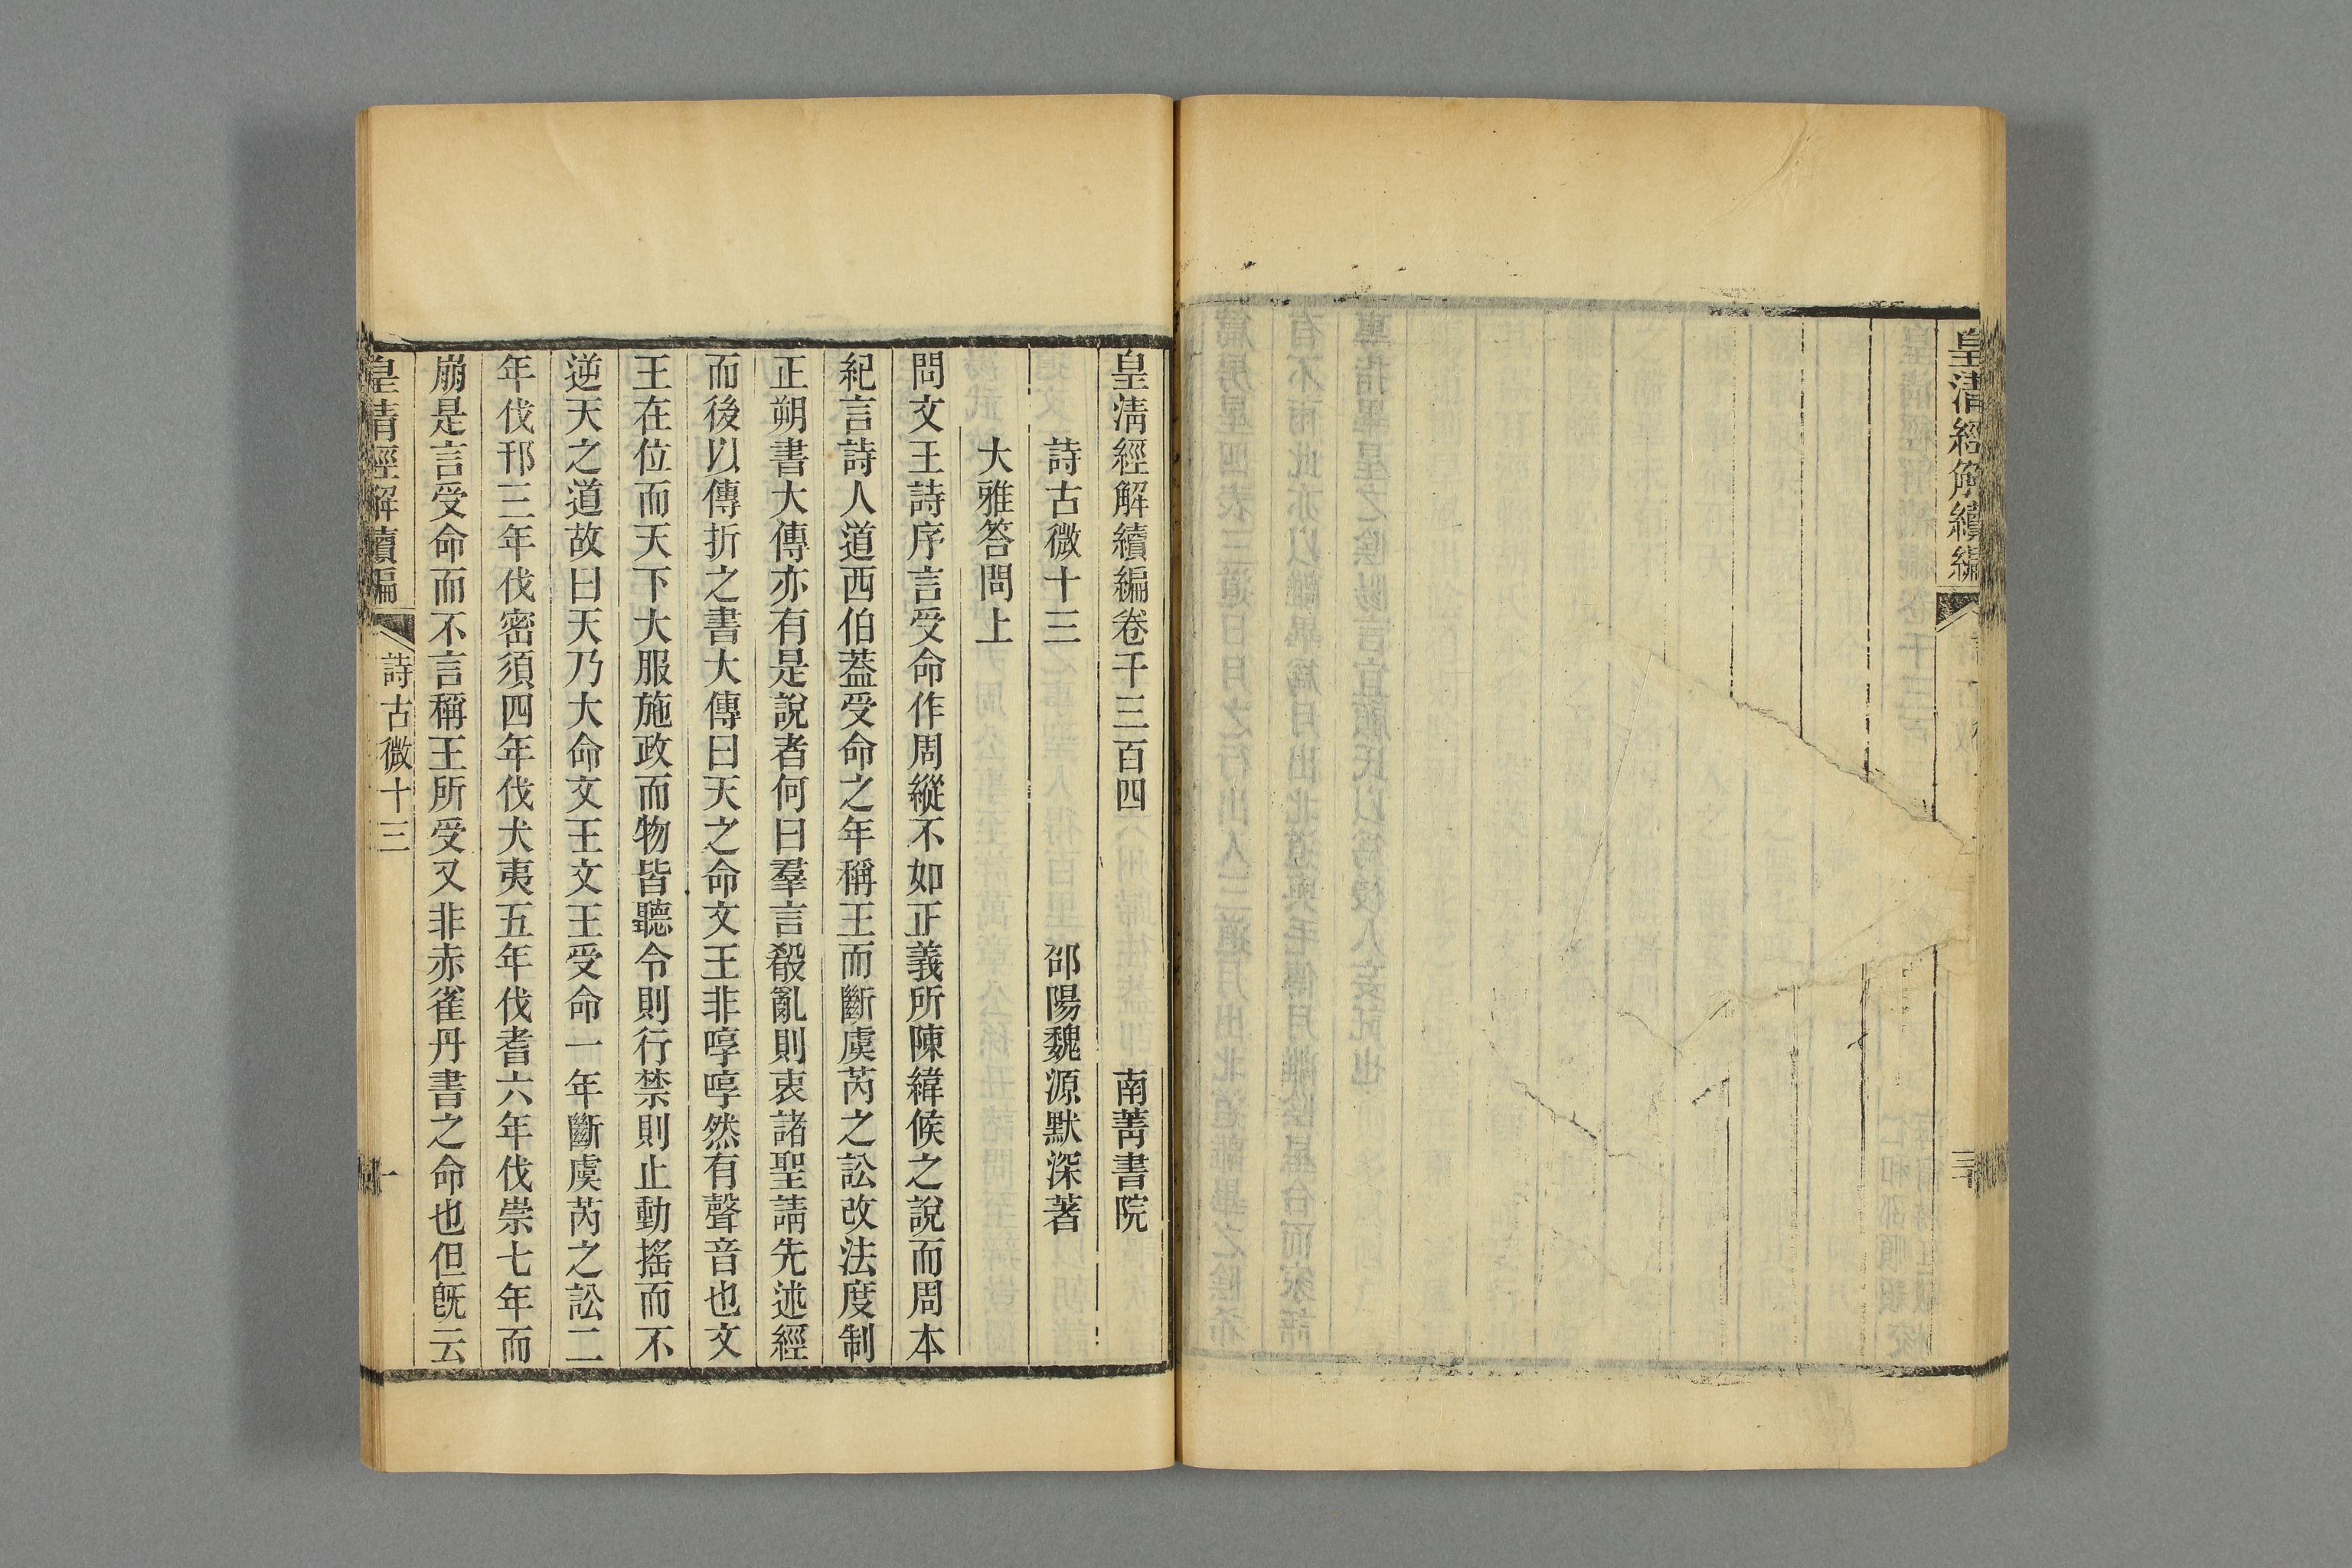 皇清經解續編
三十
皇清經解續編卷千三百四 南菁書院
詩古微十三 邵陽魏源默深著
大雅答問上
問文王詩序言受命作周縱不如正義所陳緯候之說而周本
紀言詩人道西伯葢受命之年稱王而斷虞芮之訟改法度制
正朔書大傳亦有是說者何曰羣言殽亂則衷諸聖請先述經
而後以傳折之書大傳曰天之命文王非啍啍然有聲音也文
王在位而天下大服施政而物皆聽令則行禁則止動搖而不
逆天之道故曰天乃大命文王文王受命一年斷虞芮之訟二
年伐邘三年伐密須四年伐犬夷五年伐耆六年伐崇七年而
崩是言受命而不言稱王所受又非赤雀丹書之命也但旣云
皇清經解續編 詩古微十三 一